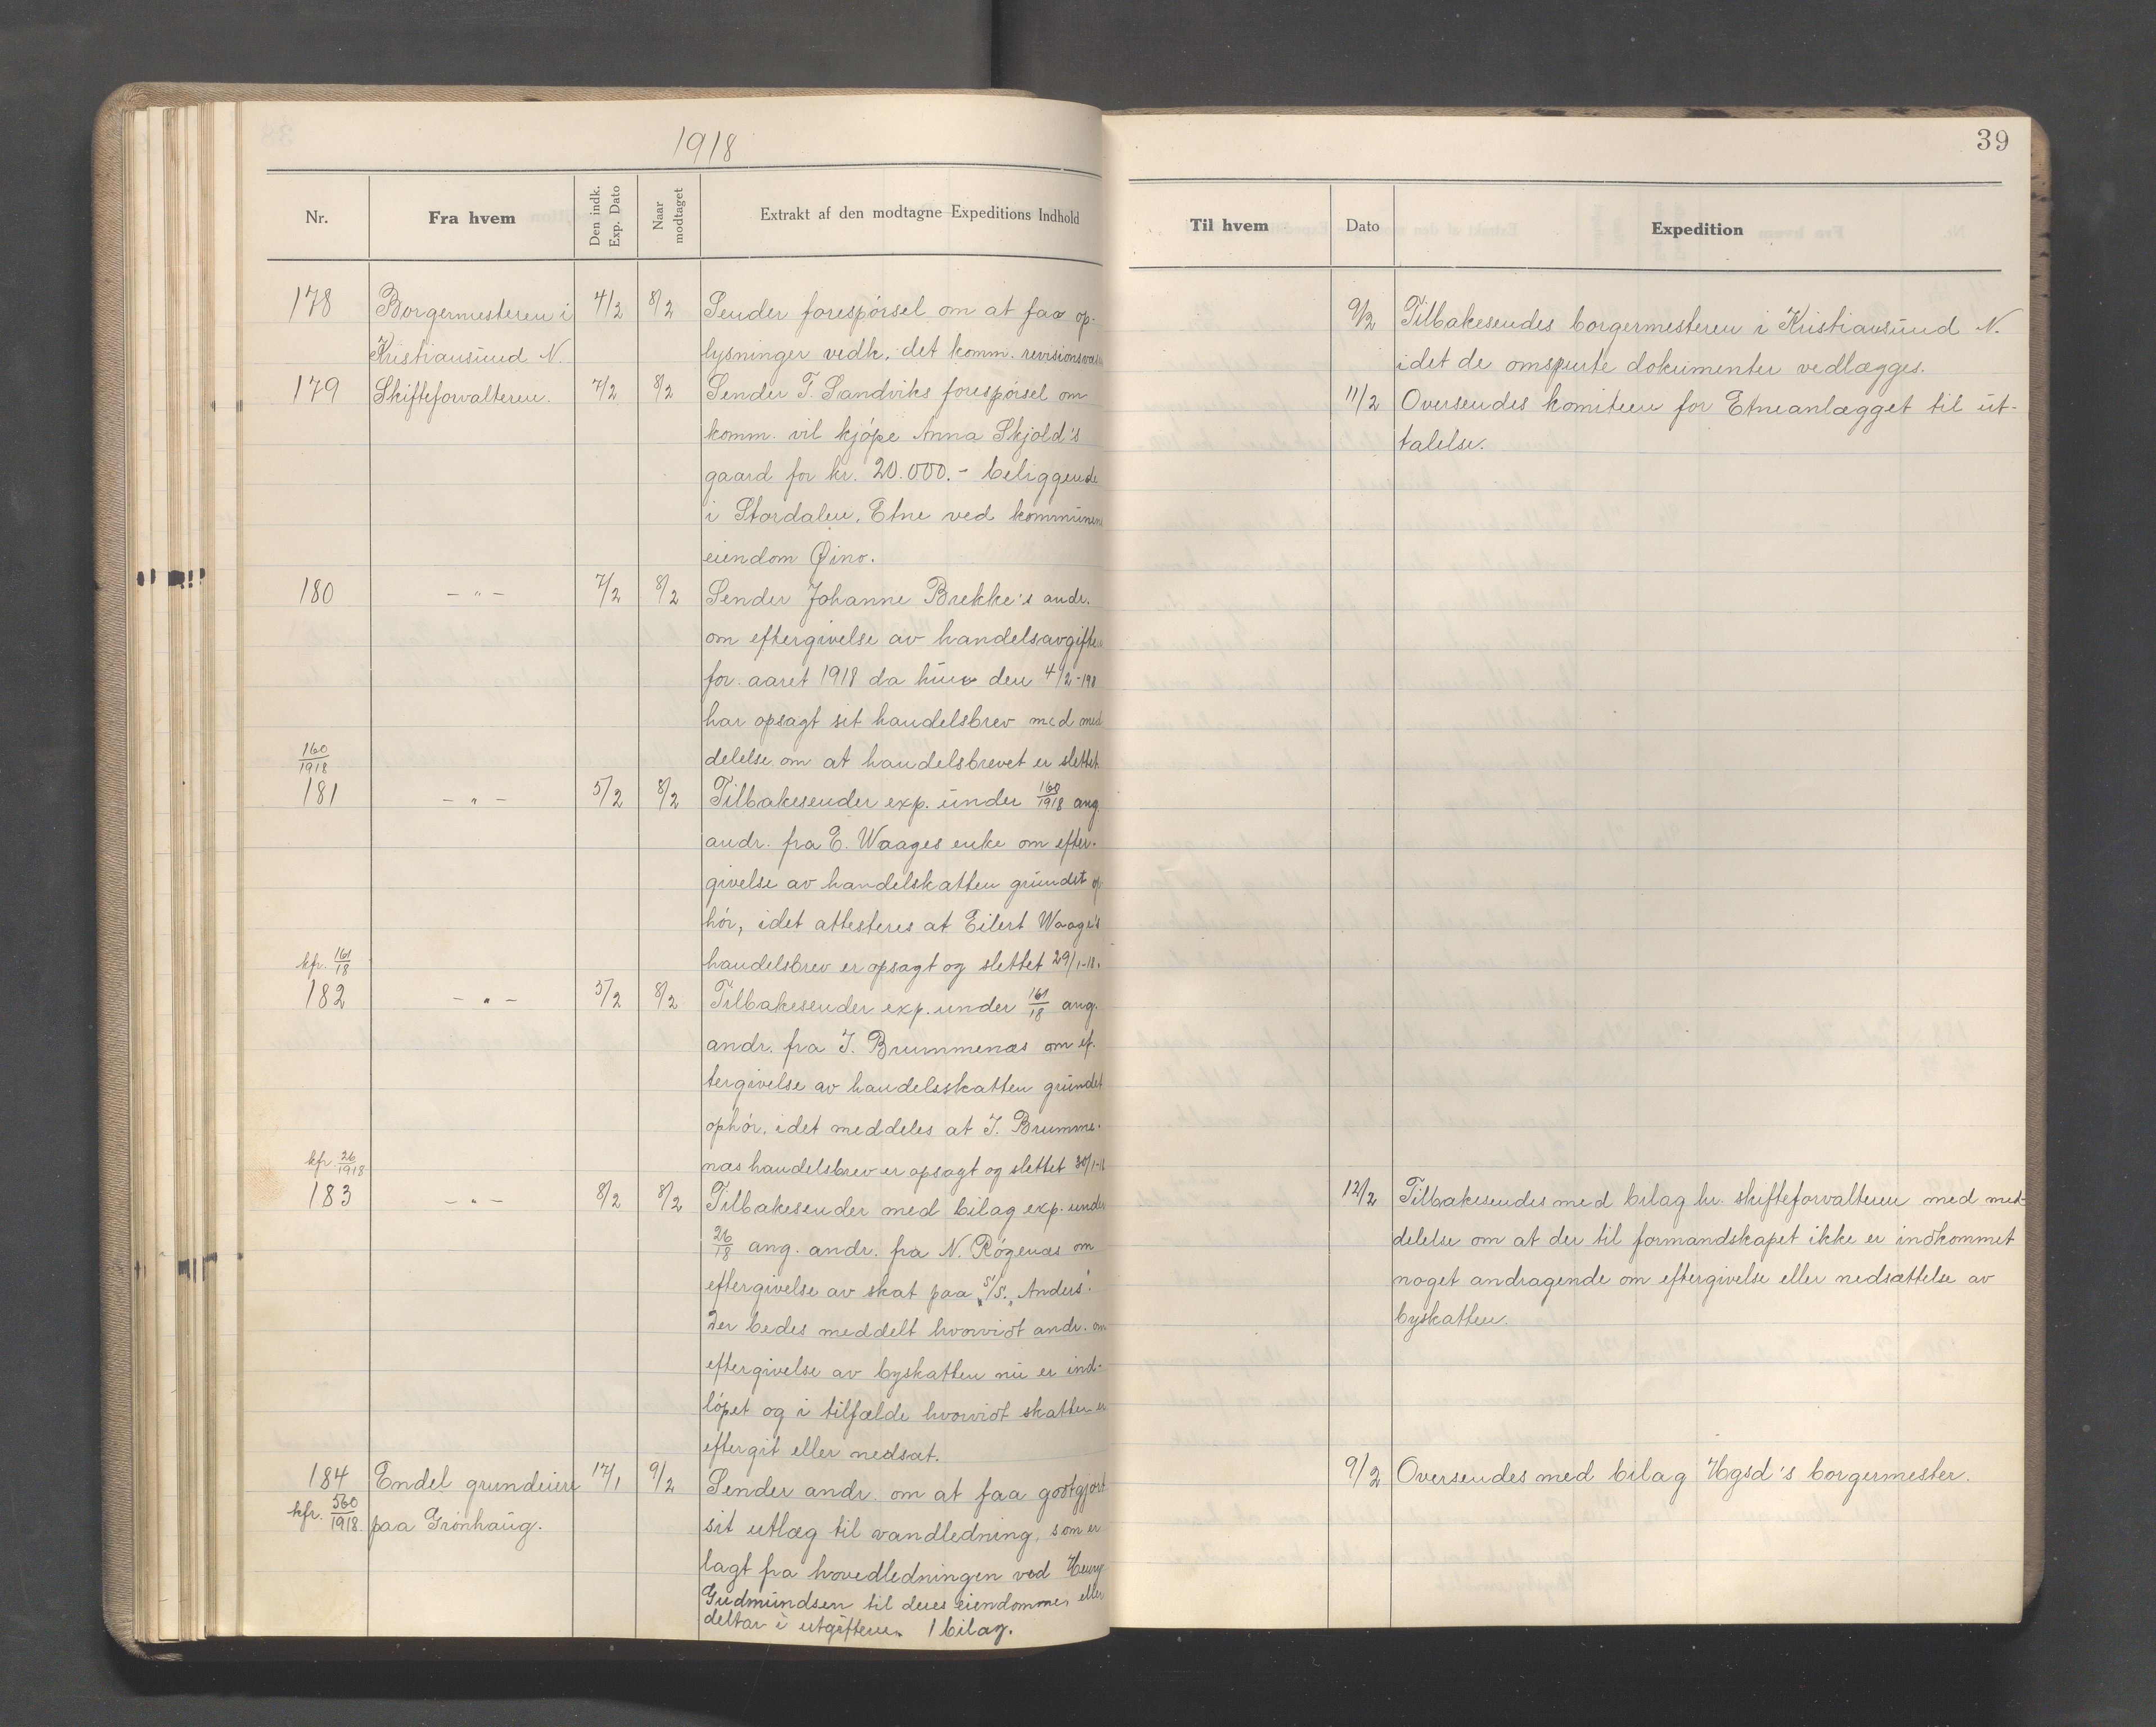 1918
Nr.
Fra hvem
Den indk. Exp. Dato
Naar modtaget
Extrakt af den modtagne Expeditions Indhold
178 Borgermesteren i 4/2 8/2 Sender forespørsel om at faa op-
Kristiansund N. lysninger vedk. det komm. revisionsvæs
179 Skifteforvalteren. 7/2 8/2 Sender T. Sandviks forespørsel om
komm. vil kjøpe Anna Skjold's
gaard for kr. 20.000.- beliggende
i Stordalen, Etne ved kommunens
eiendom Øino.
180 - " - 7/2 8/2 Sender Johanne Brekke's andr.
om eftergivelse av handelsavgiften
for aaret 1918 da hun den 4/2-1918
har opsagt sit handelsbrev med med
delelse om at handelsbrevet er slettet.
160/1918
181 - " - 5/2 8/2 Tilbakesender exp. under 160/1918 ang.
andr. fra E. Waages enke om efter-
givelse av handelskatten grundet op
hør, idet attesteres at Eilert Waage's
handelsbrev er opsagt og slettet 29/1-18.
kfr. 161/18
182 - " - 5/2 8/2 Tilbakesender exp. under 161/18 ang.
andr. fra J. Brummenæs om ef-
tergivelse av handelsskatten grundet
ophør, idet meddeles at J. Brumme-
næs handelsbrev er opsagt og slettet 30/1-18
kfr. 26/1918
183 - " - 8/2 8/2 Tilbakesender med bilag exp. under
26/18 ang. andr. fra N. Røgenæs om
eftergivelse av skat paa S/S. „Anders".
Der bedes meddelt hvorvidt andr. om
eftergivelse av byskatten nu er ind-
løpet og i tilfælde hvorvidt skatten er
eftergit eller nedsat.
184 Endel grundeiere 17/1 9/2 Sender andr. om at faa godtgjort
kfr. 560/1918. paa Grønhaug. sit utlæg til vandledning, som er
lagt fra hovedledningen ved Henry
Gudmundsen til deres eiendomme, eller
deltar i utgifterne. 1 bilag.
39
Til hvem
Dato
Expedition
9/2 Tilbakesendes borgermesteren i Kristiansund N.
idet de omspurte dokumenter vedlægges.
11/2 Oversendes komiteen for Etneanlægget til ut-
talelse.
12/2 Tilbakesendes med bilag hr. skifteforvalteren med med-
delelse om at der til formandskapet ikke er indkommet
noget andragende om eftergivelse eller nedsættelse av
byskatten.
9/2 Oversendes med bilag Hgsd's borgermester.